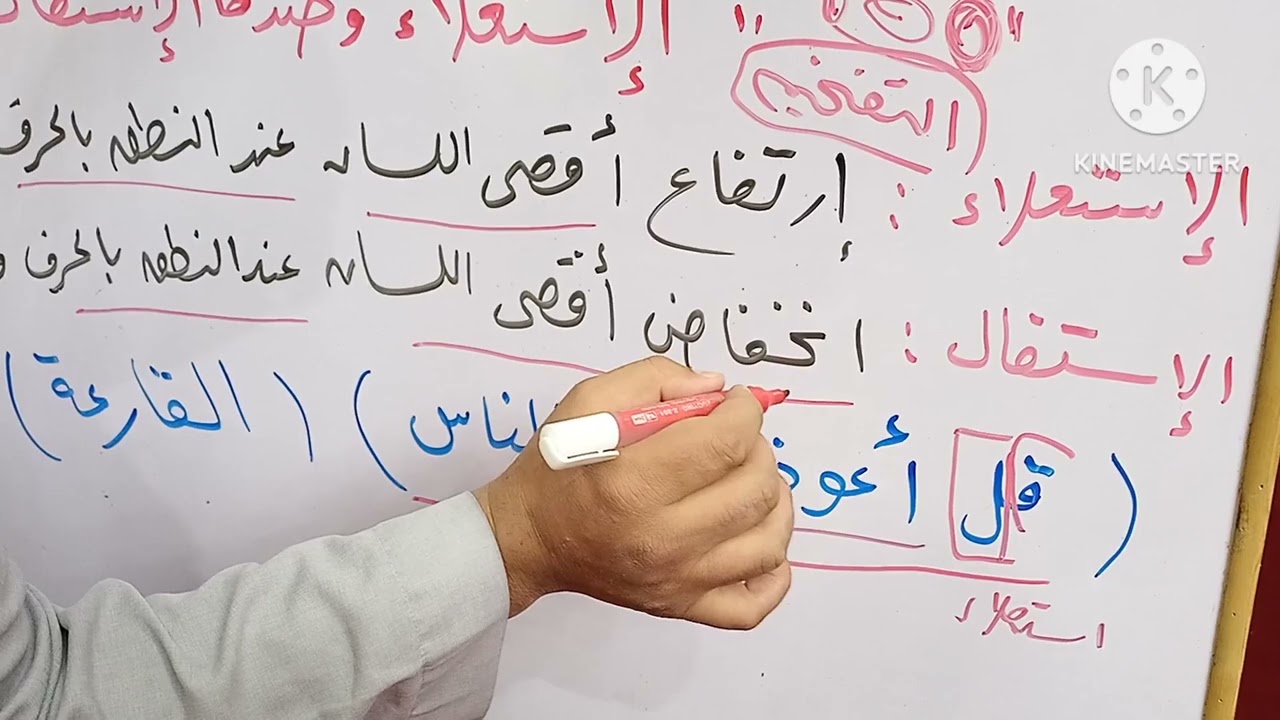 " الإستعلاء وضدها الإستفا
التفخيم
الإستعلاء : إرتفاع أقصى اللسان عند النطق بالحرف
الإستفال : انخفاض أقصى اللسان عند النطق بالحرف و
( قل أعوذ الناس ) ( القارعة )
استعلاء
KINEMASTER